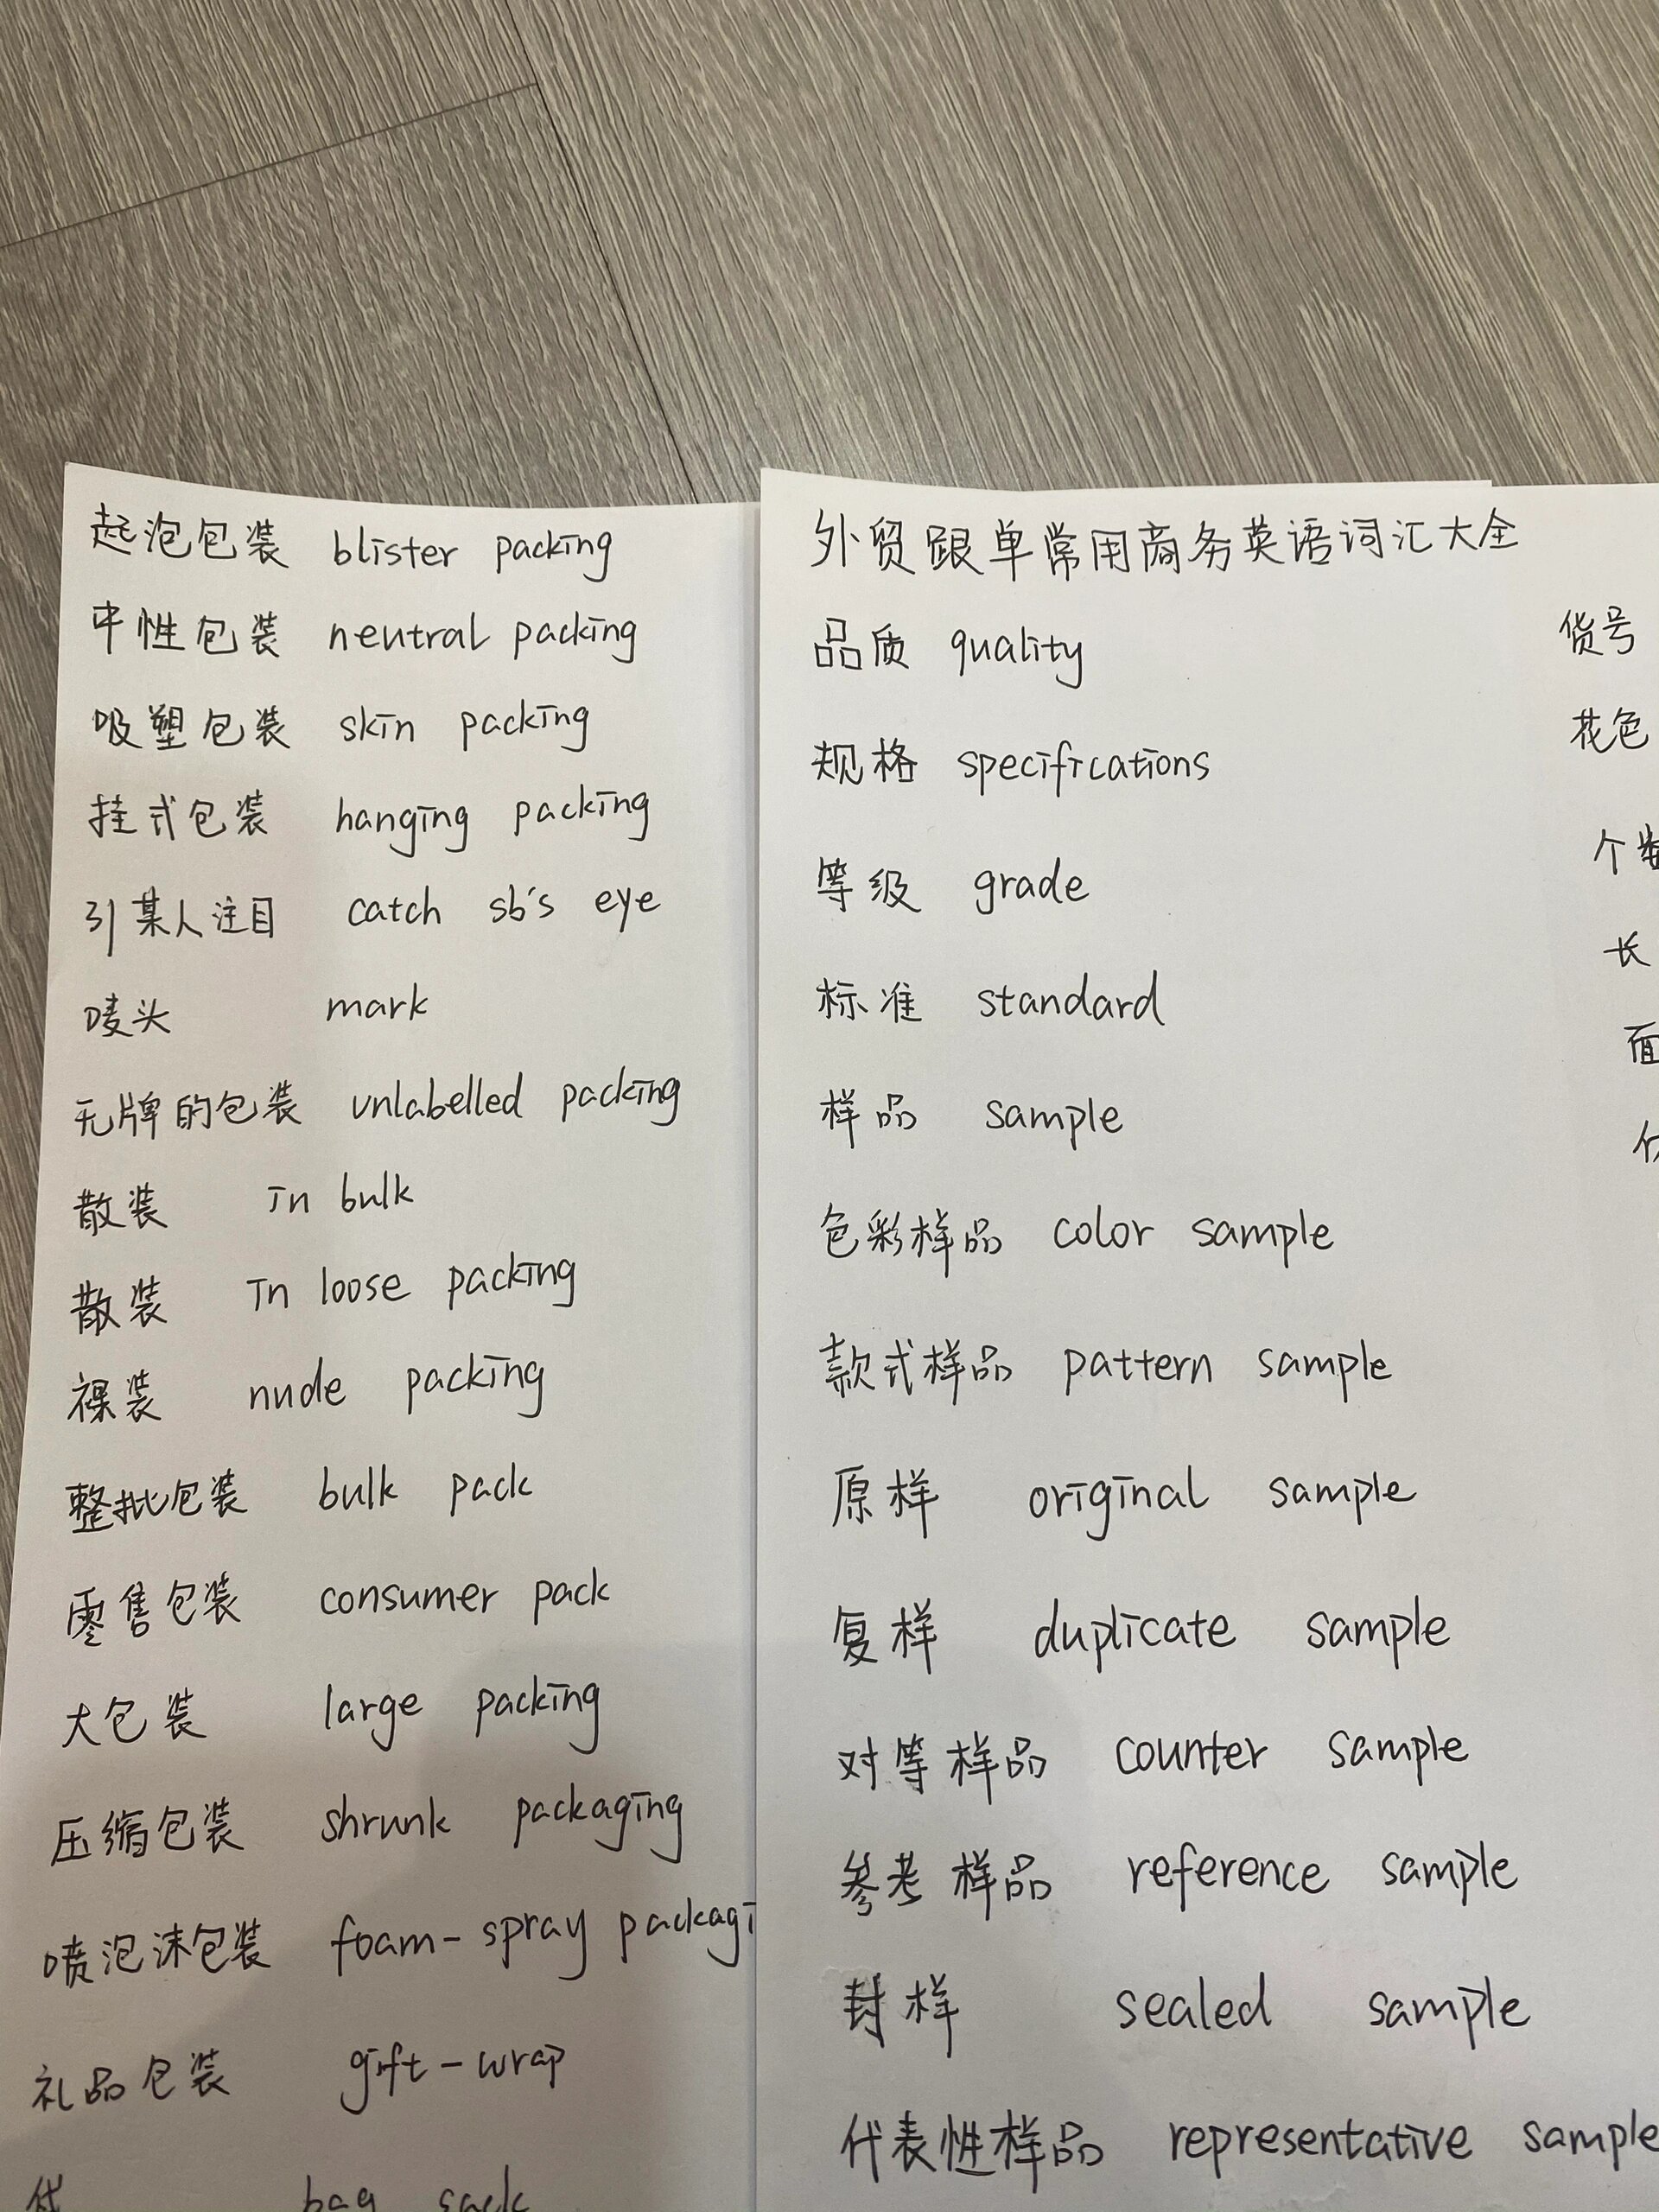 起泡包装 blister packing
中性包装 neutral packing
吸塑包装 skin packing
挂式包装 hanging packing
引某人注目 catch sb's eye
唛头 mark
无牌的包装 unlabelled packing
散装 in bulk
散装 In loose packing
裸装 nude packing
整批包装 bulk pack
零售包装 consumer pack
大包装 large packing
压缩包装 shrunk packaging
喷泡沫包装 foam-spray packagi
礼品包装 gift-wrap
bag sack
外贸跟单常用商务英语词汇大全
品质 quality
规格 specifications
等级 grade
标准 standard
样品 sample
色彩样品 color sample
款式样品 pattern sample
原样 original sample
复样 duplicate sample
对等样品 counter sample
参考样品 reference sample
封样 sealed sample
代表性样品 representative sample
货号
花色
个数
长
面